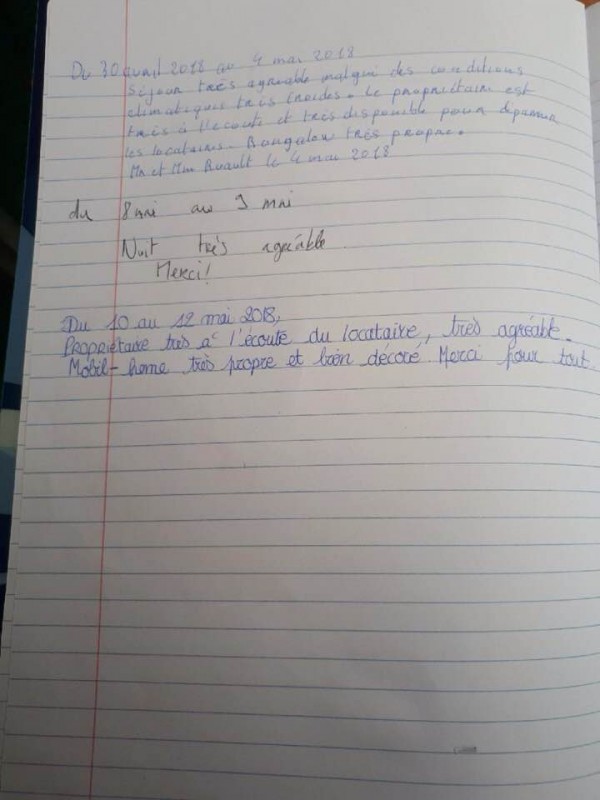 Du 30 avril 2018 au 4 mai 2018
séjour très agréable malgré des conditions
climatiques très froides. Le propriétaire est
très à l'écoute et très disponible pour dépanner
les locataires. Bongalow très propre.
Mr et Mm Ruault le 4 mai 2018
du 8 mai au 9 mai
Nuit très agréable.
Merci!
Du 10 au 12 mai 2018,
Propriétaire très à l'écoute du locataire, très agréable.
Mobil-home très propre et bien décoré. Merci pour tout.